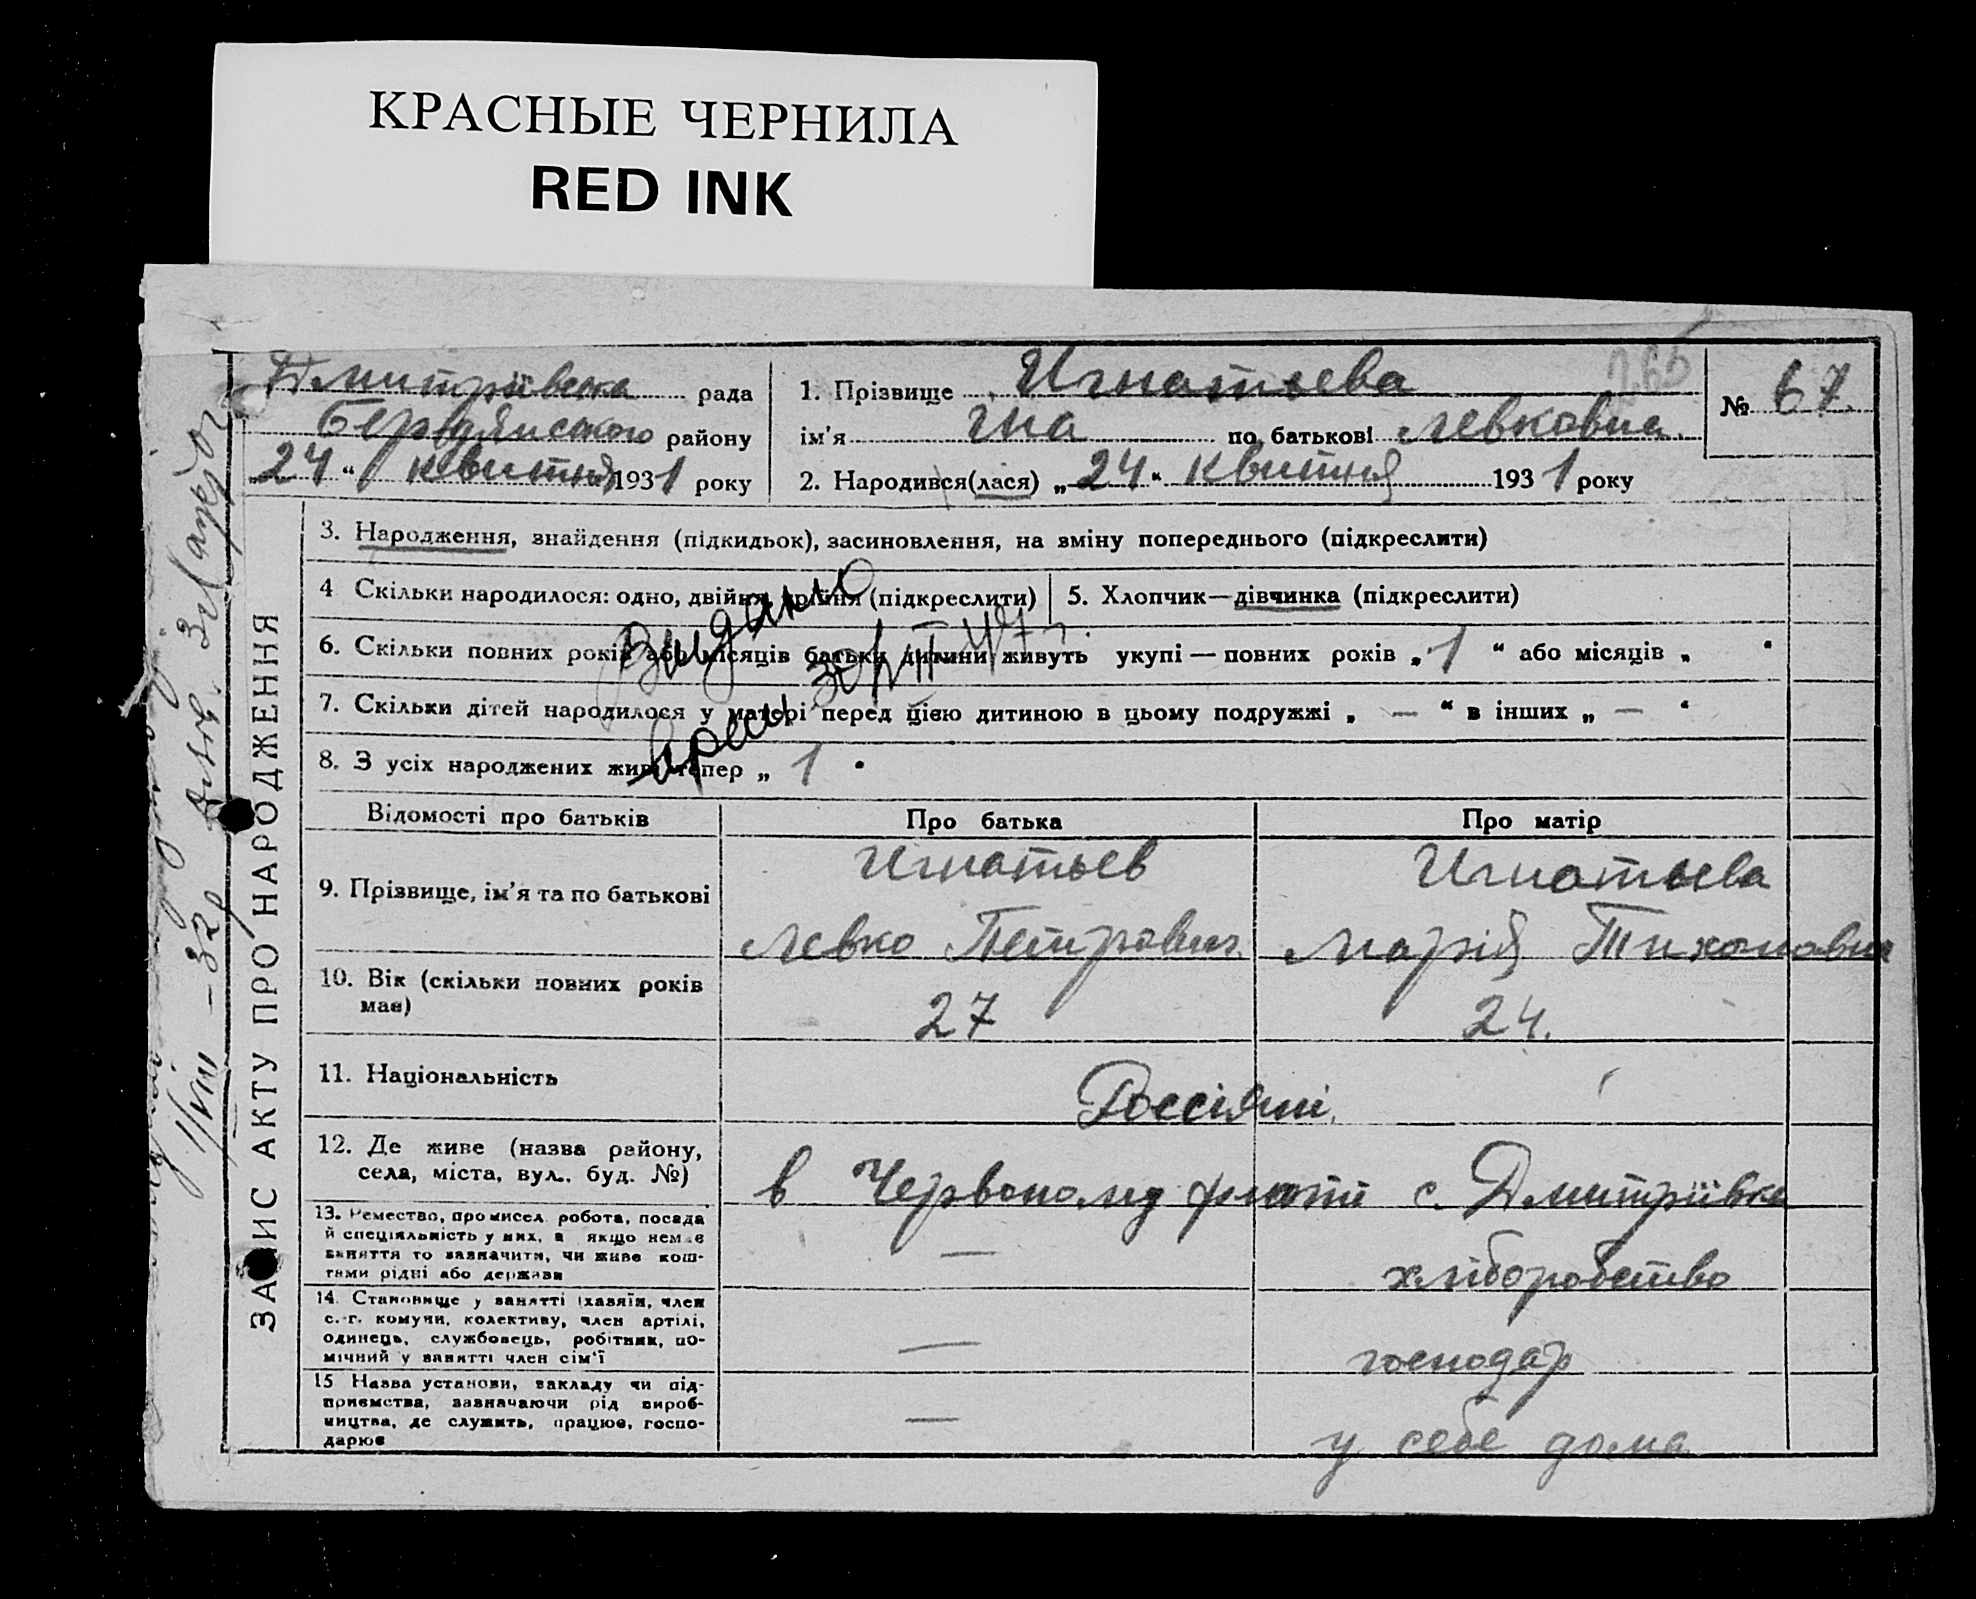 КРАСНЫЕ ЧЕРНИЛА
RED INK
Дмитрівська рада
Бердянського району
24 " квитня 1931 року
1. Прізвище Игнатьева
ім'я Іна по батькові Левковна
2. Народився(лася) „ 24 " квитня 1931 року
№ 67.
265
ЗАПИС АКТУ ПРО НАРОДЖЕННЯ
3. Народження, знайдення (підкидьок), засиновлення, на зміну попереднього (підкреслити)
4 Скільки народилося: одно, двійня, трійня (підкреслити)
5. Хлопчик—дівчинка (підкреслити)
6. Скільки повних років або місяців батьки дитини живуть укупі — повних років „ 1 " або місяців „ "
7. Скільки дітей народилося у матері перед цією дитиною в цьому подружжі „ — " в інших „ — "
8. З усіх народжених живі тепер „ 1 "
Видано
30/VII 47 г.
Відомості про батьків
Про батька
Про матір
9. Прізвище, ім'я та по батькові
Игнатьев
Левко Петрович
Игнатьева
Марія Тихоновна
10. Вік (скільки повних років має)
27
24.
11. Національність
Россіяни
12. Де живе (назва району,
села, міста, вул., буд. №)
в Червоному флоті с. Дмитрівка
13. Ремество, промисел, робота, посада
й спеціяльність у них, а якщо немає
заняття то зазначити, чи живе кош-
тами рідні або держави
—
хліборобство
14. Становище у занятті (хазяїн, член
с.-г. комуни, колективу, член артілі,
одинець, службовець, робітник, по-
мічний у занятті член сім'ї
—
господар
15 Назва установи, закладу чи під-
приємства, зазначаючи рід вироб-
ництва, де служить, працює, госпо-
дарює
—
у себе дома
1/VIII – 32 р